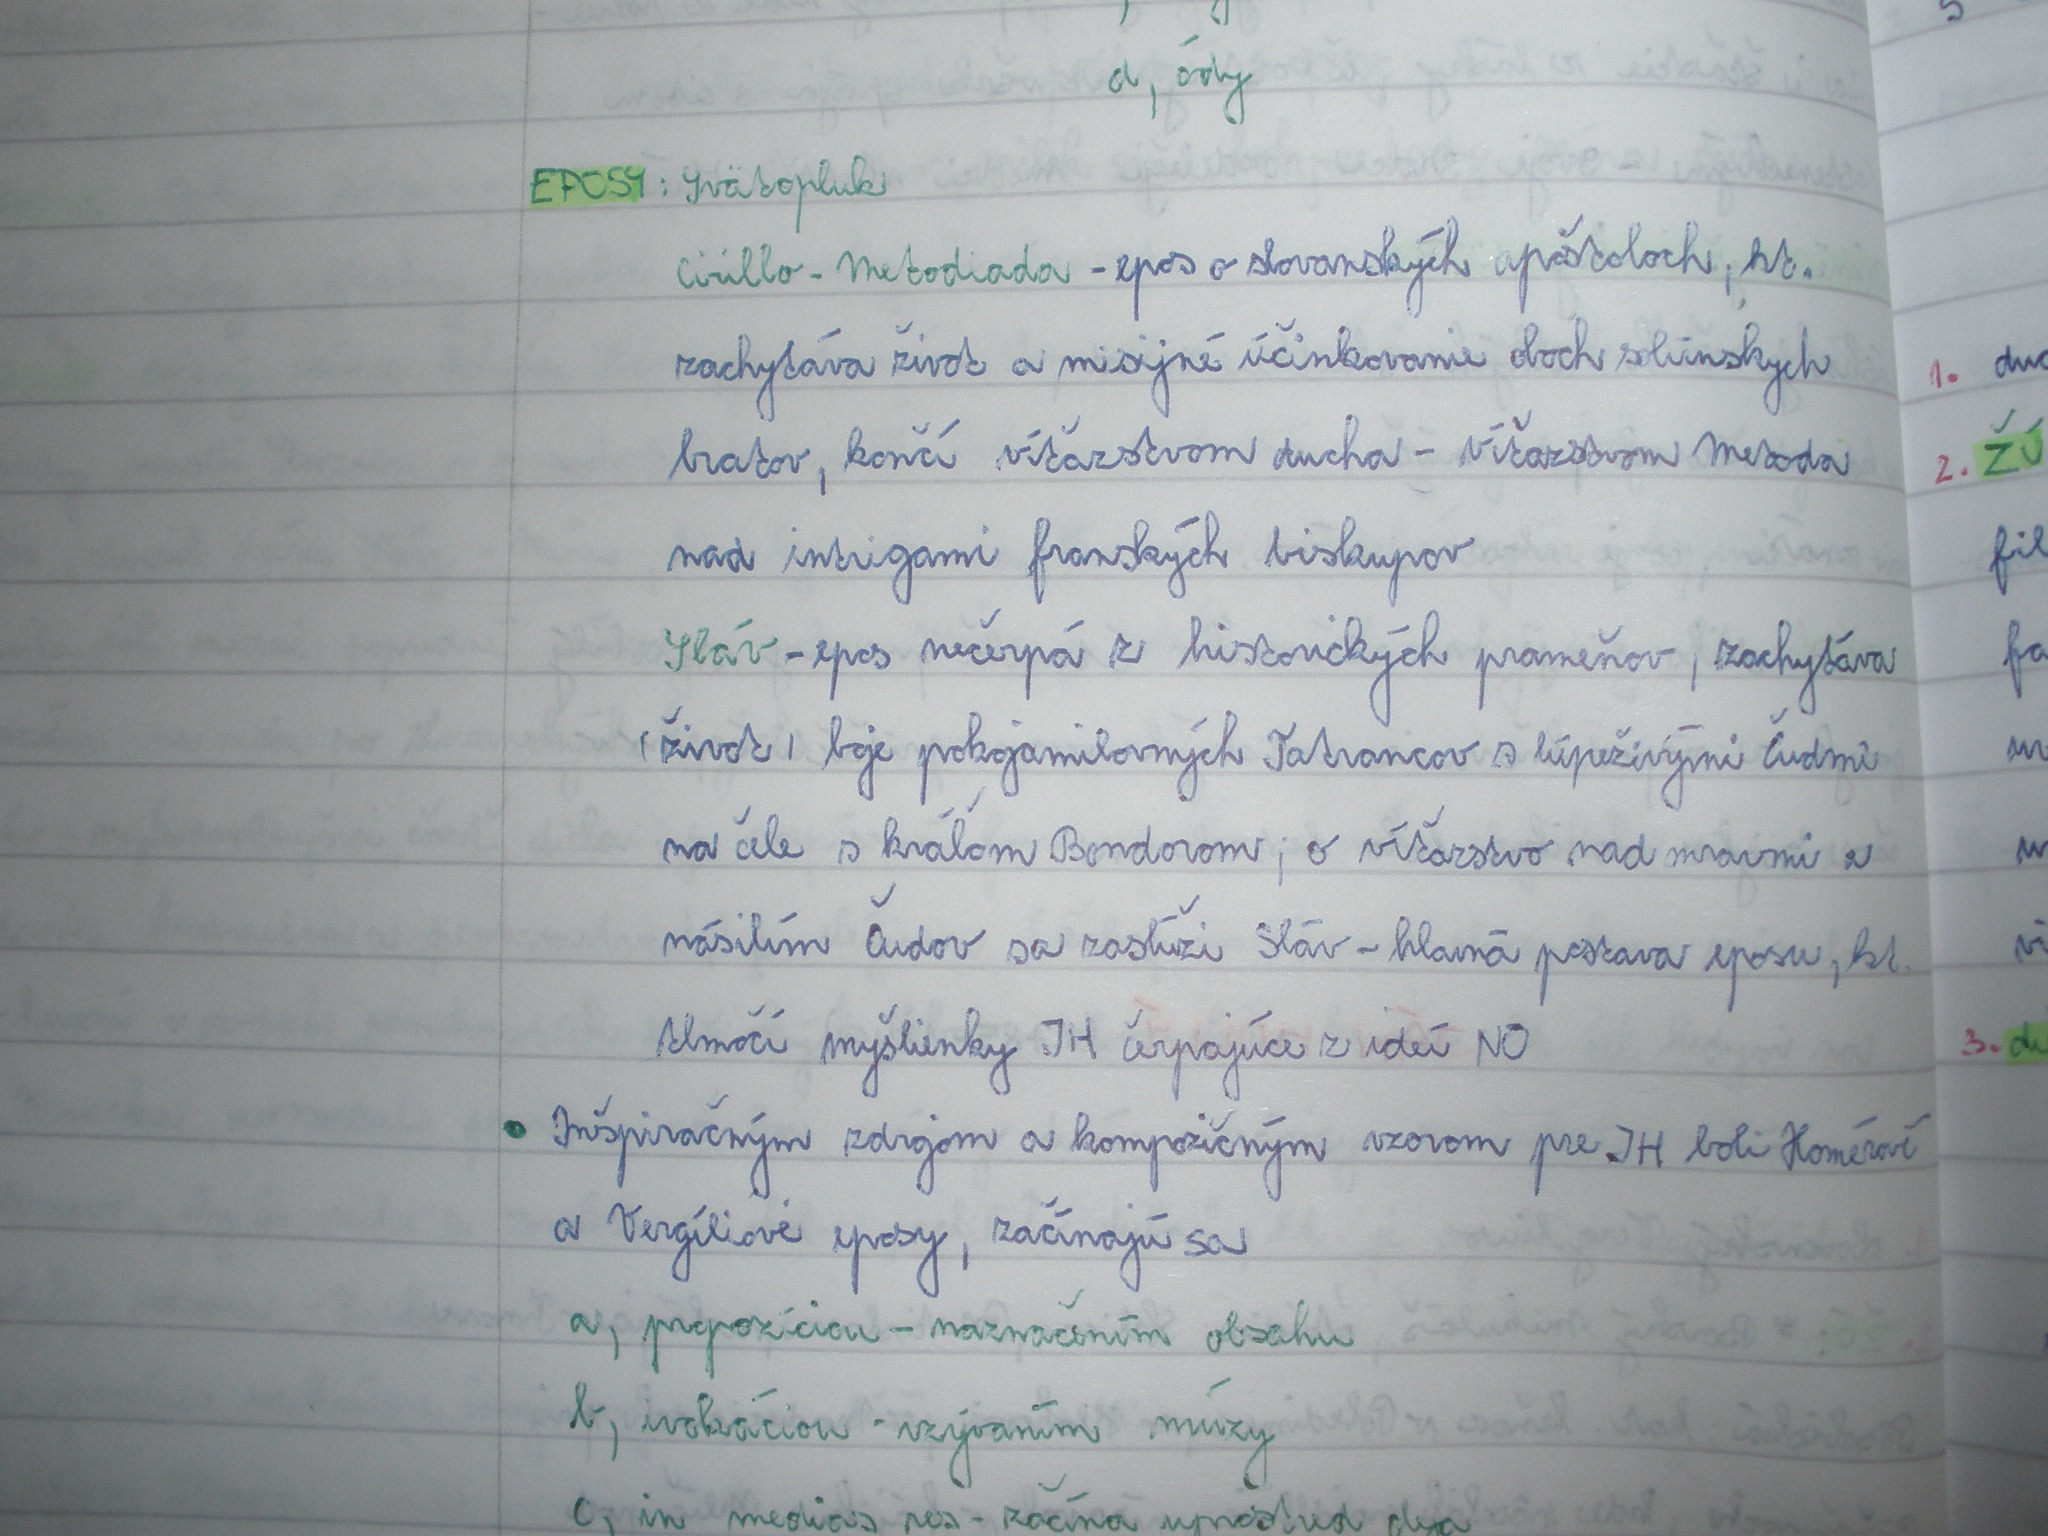 d, ódy
EPOSY: Svätopluk
Cirillo - Metodiada - epos o slovanských apoštoloch, kt.
zachytáva život a misijné účinkovanie dvoch solúnskych
bratov, končí víťazstvom ducha - víťazstvom Metoda
nad intrigami franských biskupov
Sláv - epos nečerpá z historických prameňov, zachytáva
(život) boje pokojamilovných Tatrancov s lúpeživými Čudmi
na čele s kráľom Bondorom; o víťazstvo nad mravmi a
násilím Čudov sa zaslúži Sláv - hlavná postava eposu, kt.
tlmočí myšlienky JH čerpajúce z ideí NO
• Inšpiračným zdrojom a kompozičným vzorom pre JH boli Homérové
a Vergíliové eposy, začínajú sa
a, propozíciou - naznačením obsahu
b, invokáciou - vzývaním múzy
c, in medias res - začína uprostred deja
1.
2. ŽÚ
fil
fa
vi
3. du